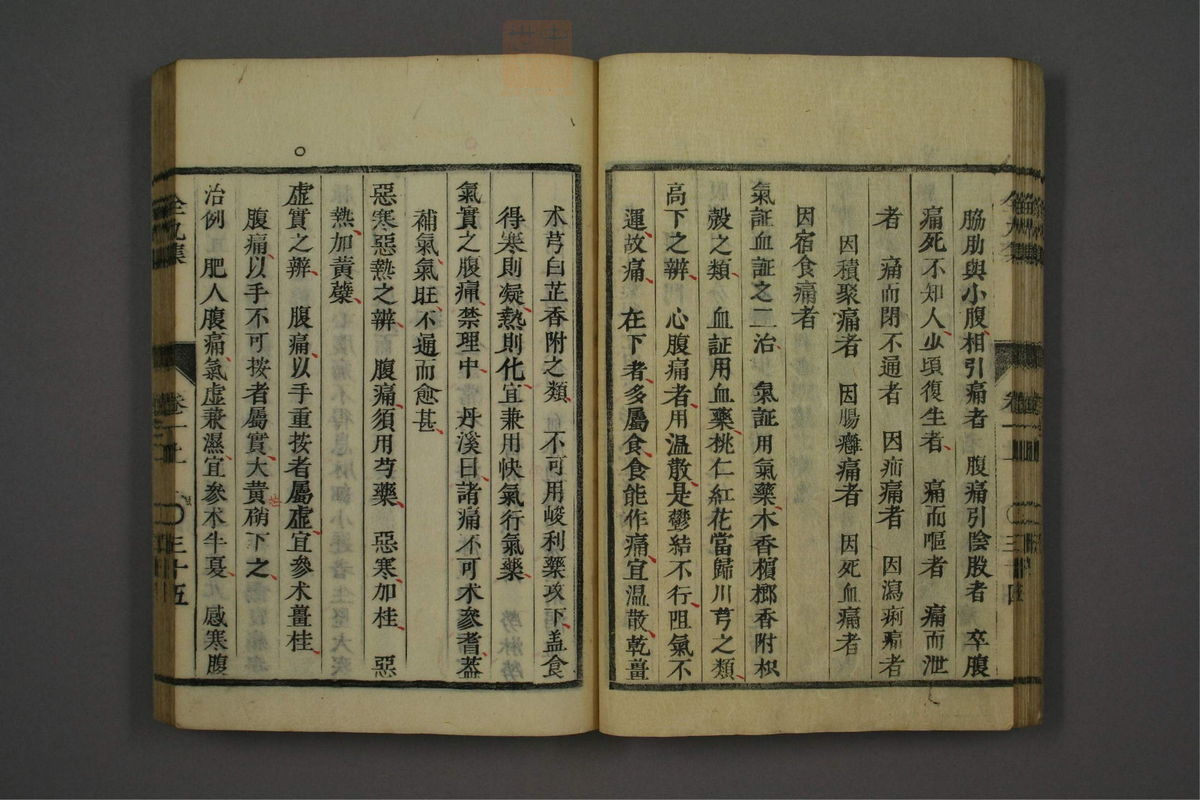 脇肋與小腹相引痛者 腹痛引陰股者 卒腹
痛死不知人少頃復生者 痛而嘔者 痛而泄
者 痛而閉不通者 因疝痛者 因瀉痢痛者
因積聚痛者 因腸癰痛者 因死血痛者
因宿食痛者
氣証血証之二治 氣証用氣藥木香檳榔香附枳
殼之類 血証用血藥桃仁紅花當歸川芎之類
高下之辨 心腹痛者用温散是鬱結不行阻氣不
運故痛 在下者多屬食食能作痛宜温散乾薑
卷一上 〇三十四
术芎白芷香附之類 不可用峻利藥攻下盖食
得寒則凝熱則化宜兼用快氣行氣藥
氣實之腹痛禁理中 丹溪曰諸痛不可术參耆蓋
補氣氣旺不通而愈甚
惡寒惡熱之辨 腹痛須用芍藥 惡寒加桂 惡
熱加黄蘗
虚實之辨 腹痛以手重按者屬虚宜參术薑桂
腹痛以手不可按者屬實大黄硝下之
治例 肥人腹痛氣虚兼濕宜參术半夏 感寒腹
全九集 卷一上 〇三十五